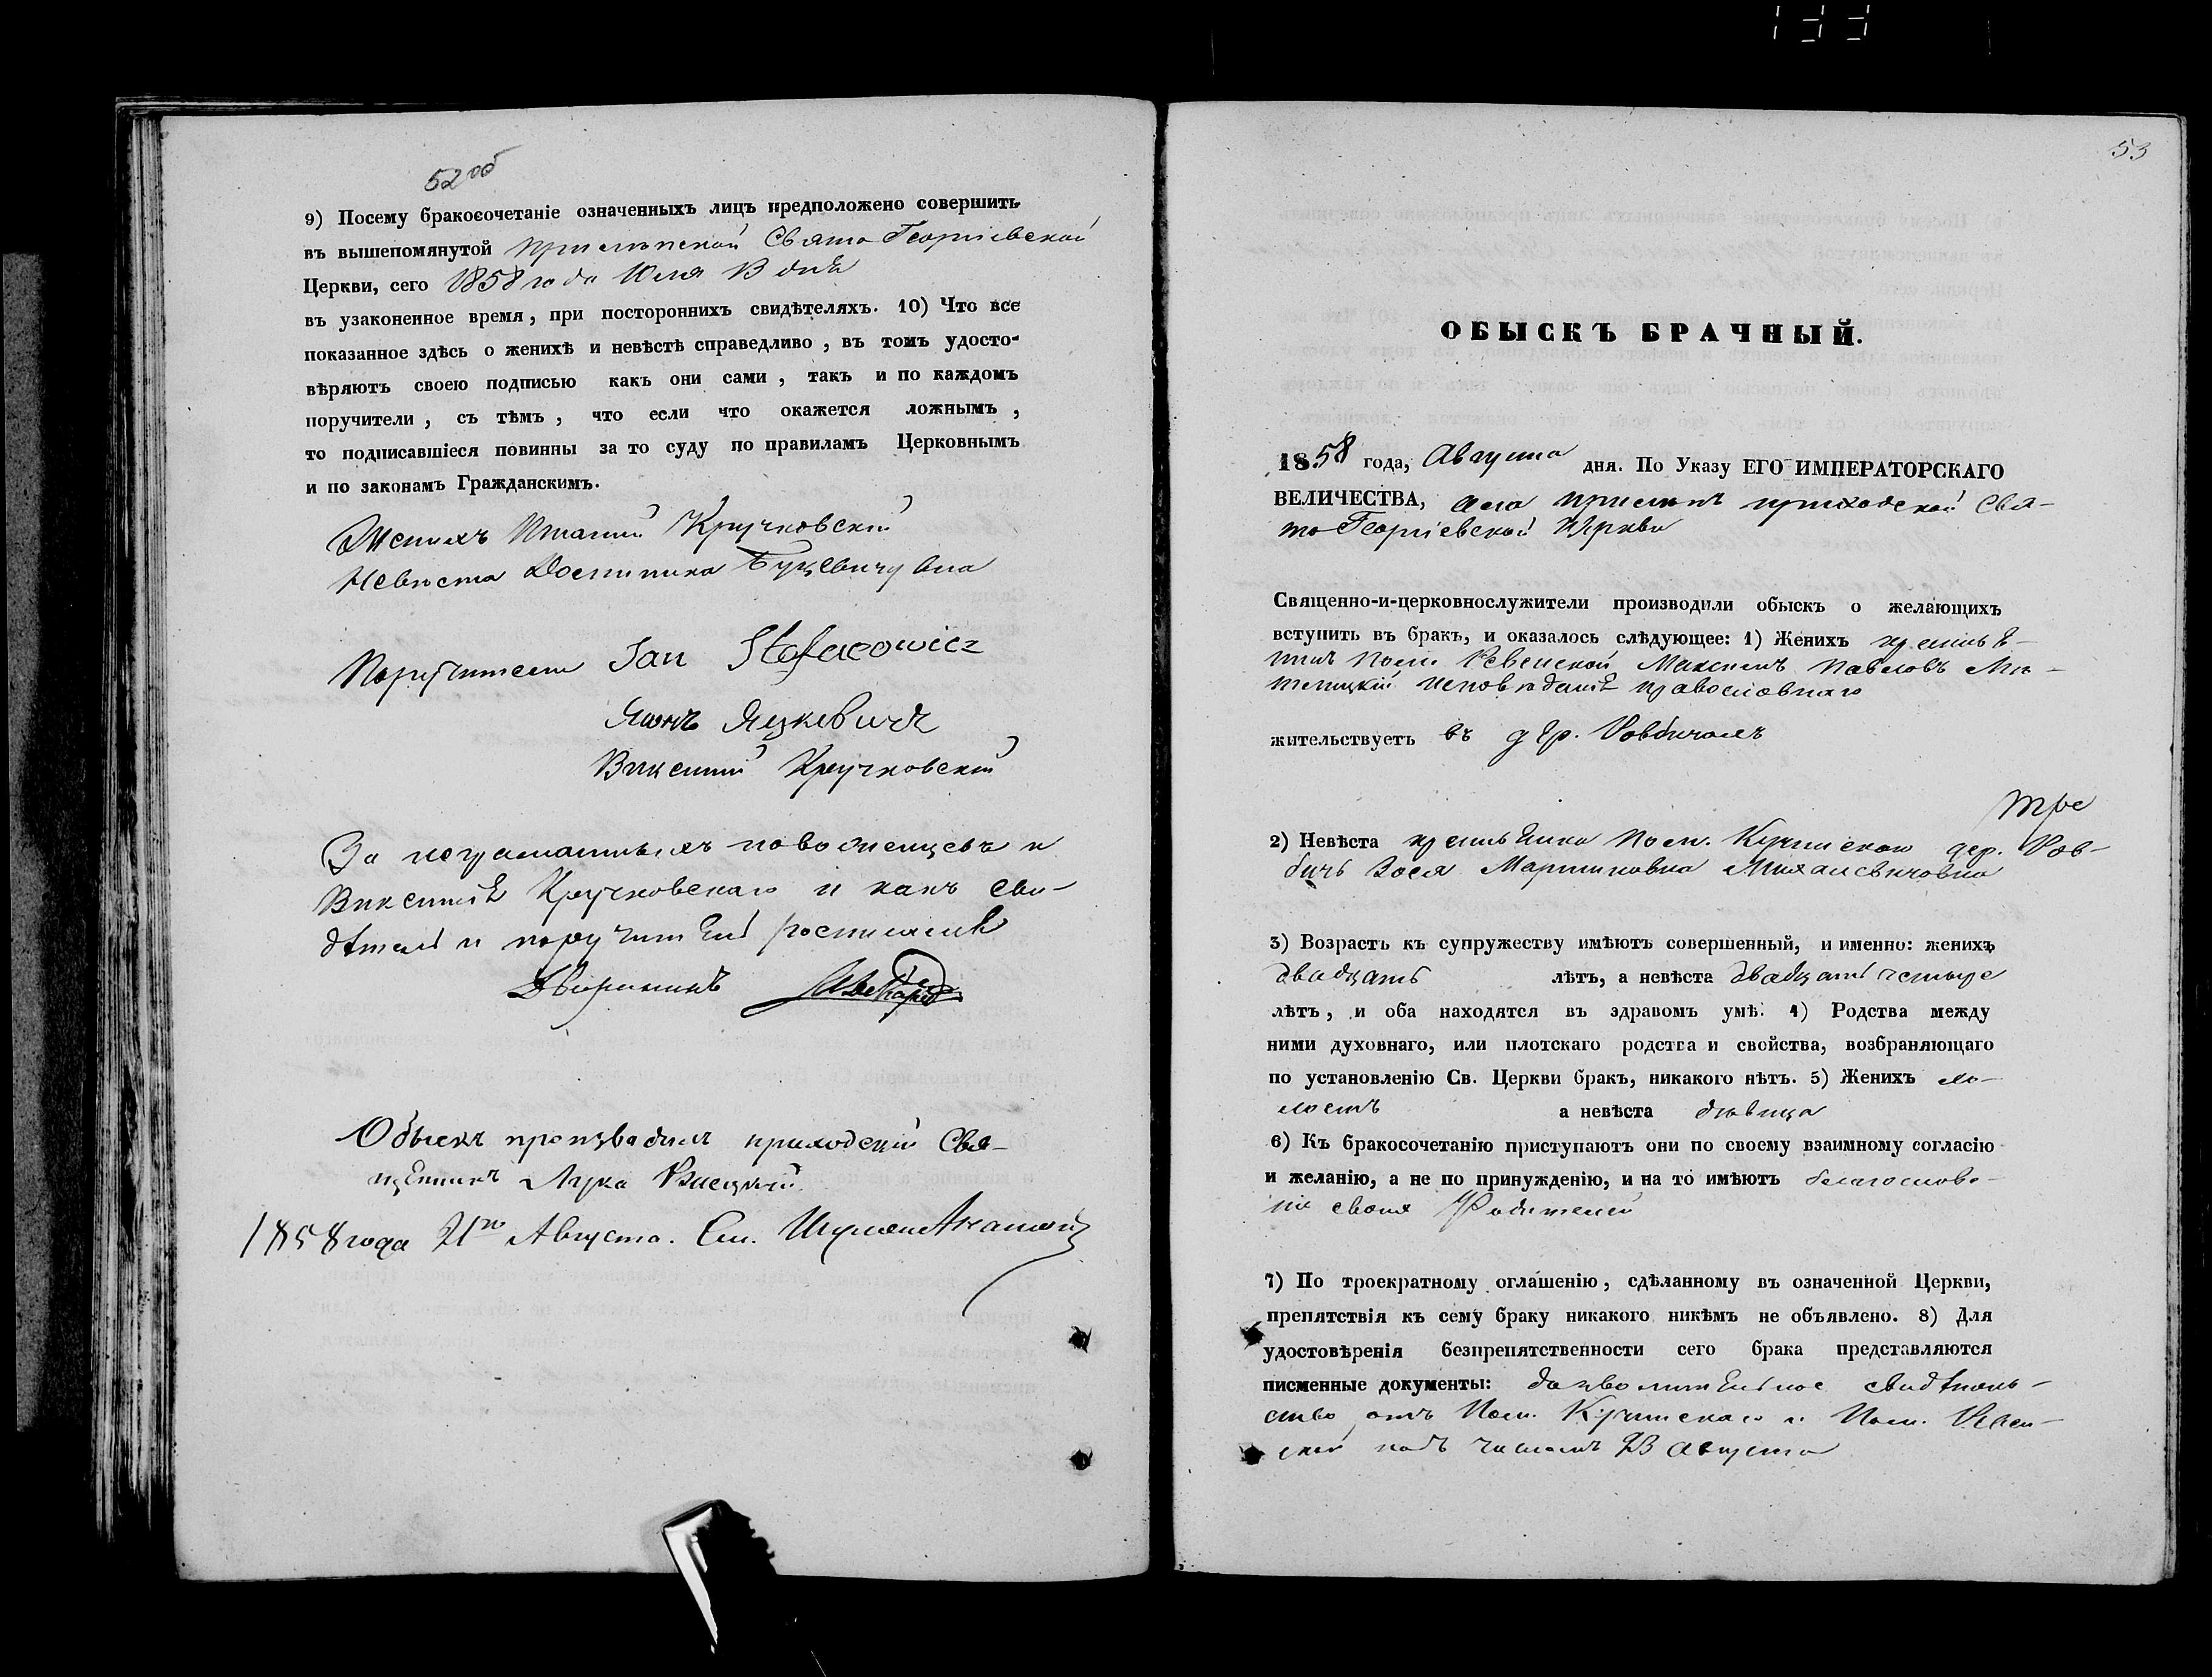 133
52об
9) Посему бракосочетаніе означенныхъ лицъ предположено совершить
въ вышепомянутой Свято Георгіевской
Церкви, сего 1858 года Юля дня
въ узаконенное время, при постороннихъ свидѣтеляхъ. 10) Что все
показанное здѣсь о женихѣ и невѣстѣ справедливо, въ томъ удосто-
вѣряютъ своею подписью какъ они сами, такъ и по каждомъ
поручители, съ тѣмъ, что если что окажется ложнымъ,
то подписавшіеся повинны за то суду по правиламъ Церковнымъ
и по законамъ Гражданскимъ.
Женихъ Игнатій Кручковскій
Невѣста
Поручители Jan
Янъ Яцкевичъ
Викентій Кручковскій
За неграматныхъ новоженцевъ и
Викентія Кручковскаго и какъ сви-
дѣтель и поручитель росписался
Дворянинъ
Обыскъ произвадилъ приходскій Свя-
щенникъ Лука
1858 года 21го Августа.
53
ОБЫСКЪ БРАЧНЫЙ.
1858 года, Августа дня. По Указу ЕГО ИМПЕРАТОРСКАГО
ВЕЛИЧЕСТВА, села приходской Свя-
то Георгіевской Церкви
Священно-и-церковнослужители производили обыскъ о желающихъ
вступить въ бракъ, и оказалось слѣдующее: 1) Женихъ крестья-
нинъ пом. Павловъ
исповѣданія православнаго
жительствуетъ въ дер.
2) Невѣста крестьянка пом. дер. Ров-
бичъ Зося Мартиновна
3) Возрастъ къ супружеству имѣютъ совершенный, и именно: женихъ
двадцать лѣтъ, а невѣста двадцать четыре
лѣтъ, и оба находятся въ здравомъ умѣ. 4) Родства между
ними духовнаго, или плотскаго родства и свойства, возбраняющаго
по установленію Св. Церкви бракъ, никакого нѣтъ. 5) Женихъ хо-
лостъ а невѣста дѣвица
6) Къ бракосочетанію приступаютъ они по своему взаимному согласію
и желанію, а не по принужденію, и на то имѣютъ благослове-
ніе своихъ Родителей
7) По троекратному оглашенію, сдѣланному въ означенной Церкви,
препятствія къ сему браку никакого никѣмъ не объявлено. 8) Для
удостовѣренія безпрепятственности сего брака представляются
писменные документы: дозволительное свидѣтель-
ство отъ Пом. и Пом.
подъ числомъ августа